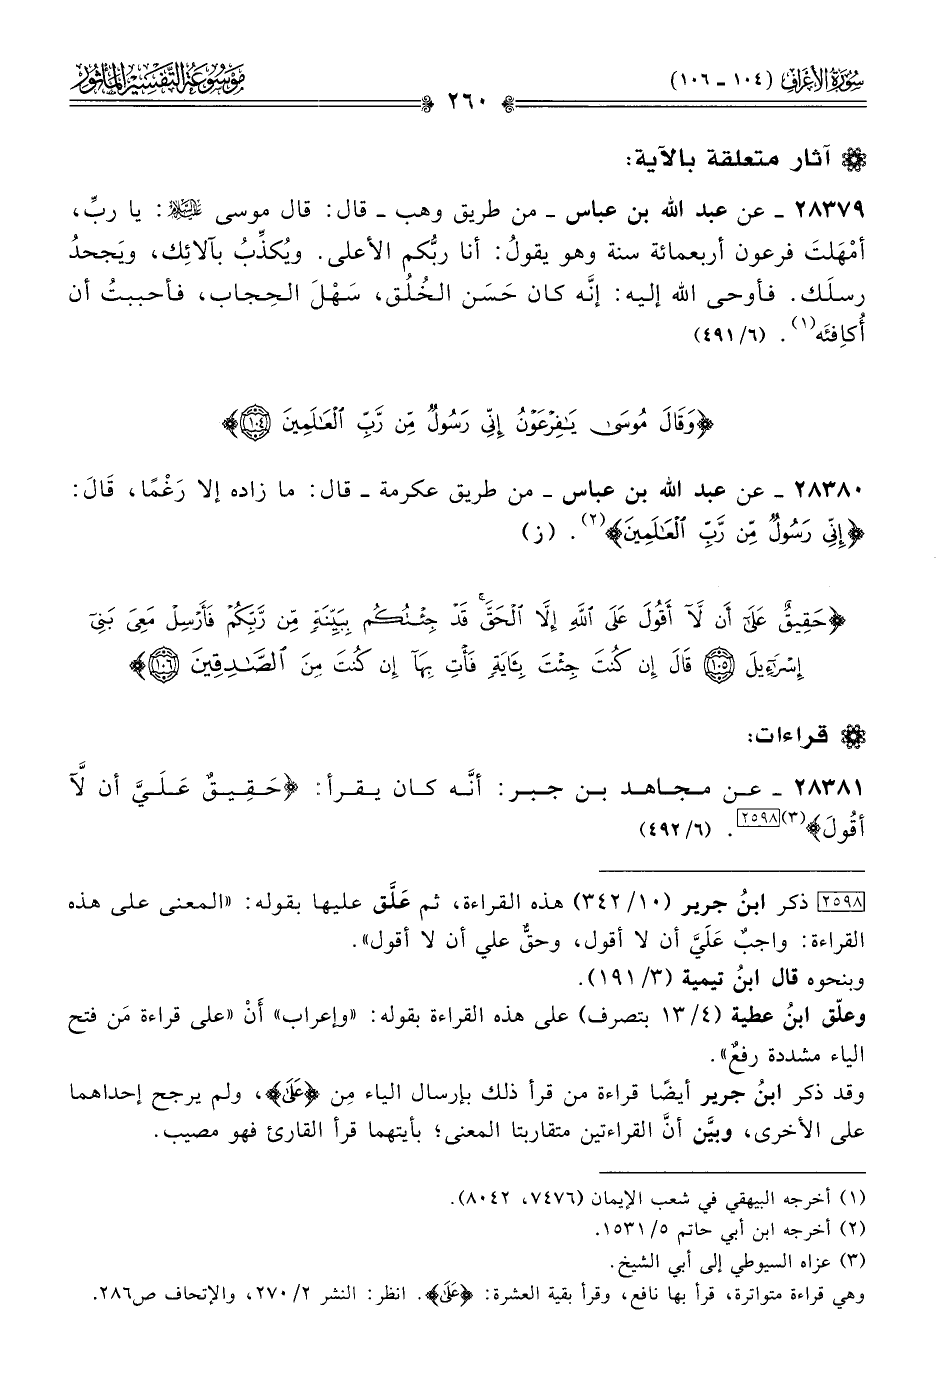 سُورَةُ الأَعْرَافِ (١٠٤ - ١٠٦)
٢٦٠
مَوْسُوعَةُ التَّفْسِيرِ المَأْثُورِ
آثار متعلقة بالآية:
٢٨٣٧٩ ـ عن عبد الله بن عباس ـ من طريق وهب ـ قال: قال موسى عليه السلام: يا ربِّ،
أمْهَلتَ فرعون أربعمائة سنة وهو يقولُ: أنا ربُّكم الأعلى. ويُكذِّبُ بآلائِك، ويَجحدُ
رسلَك. فأوحى الله إليه: إنَّه كان حَسَن الخُلُق، سَهْلَ الحِجاب، فأحببتُ أن
أُكافِئَه(١). (٦/ ٤٩١)
﴿وَقَالَ مُوسَىٰ يَٰفِرْعَوْنُ إِنِّى رَسُولٌ مِّن رَّبِّ ٱلْعَٰلَمِينَ ١٠٤﴾
٢٨٣٨٠ ـ عن عبد الله بن عباس ـ من طريق عكرمة ـ قال: ما زاده إلا رَغْمًا، قَالَ:
﴿إِنِّى رَسُولٌ مِّن رَّبِّ ٱلْعَٰلَمِينَ﴾(٢). (ز)
﴿حَقِيقٌ عَلَىٰٓ أَن لَّآ أَقُولَ عَلَى ٱللَّهِ إِلَّا ٱلْحَقَّ ۚ قَدْ جِئْتُكُم بِبَيِّنَةٍ مِّن رَّبِّكُمْ فَأَرْسِلْ مَعِىَ بَنِىٓ
إِسْرَٰٓءِيلَ ١٠٥ قَالَ إِن كُنتَ جِئْتَ بِـَٔايَةٍ فَأْتِ بِهَآ إِن كُنتَ مِنَ ٱلصَّٰدِقِينَ ١٠٦﴾
قراءات:
٢٨٣٨١ ـ عن مجاهد بن جبر: أنَّه كان يقرأ: ﴿حَقِيقٌ عَلَيَّ أن لَّآ
أقُولَ﴾(٣)[٢٥٩٨]. (٦/ ٤٩٢)
[٢٥٩٨] ذكر ابنُ جرير (١٠/ ٣٤٢) هذه القراءة، ثم عَلَّق عليها بقوله: «المعنى على هذه
القراءة: واجبٌ عَلَيَّ أن لا أقول، وحقٌّ علي أن لا أقول».
وبنحوه قال ابنُ تيمية (٣/ ١٩١).
وعلّق ابنُ عطية (٤/ ١٣ بتصرف) على هذه القراءة بقوله: «وإعراب» أَنْ «على قراءة مَن فتح
الياء مشددة رفعٌ».
وقد ذكر ابنُ جرير أيضًا قراءة من قرأ ذلك بإرسال الياء مِن ﴿عَلَىٰ﴾، ولم يرجح إحداهما
على الأخرى، وبيَّن أنَّ القراءتين متقاربتا المعنى؛ بأيتهما قرأ القارئ فهو مصيب.
(١) أخرجه البيهقي في شعب الإيمان (٧٤٧٦، ٨٠٤٢).
(٢) أخرجه ابن أبي حاتم ٥/ ١٥٣١.
(٣) عزاه السيوطي إلى أبي الشيخ.
وهي قراءة متواترة، قرأ بها نافع، وقرأ بقية العشرة: ﴿عَلَىٰ﴾. انظر: النشر ٢/ ٢٧٠، والإتحاف ص٢٨٦.